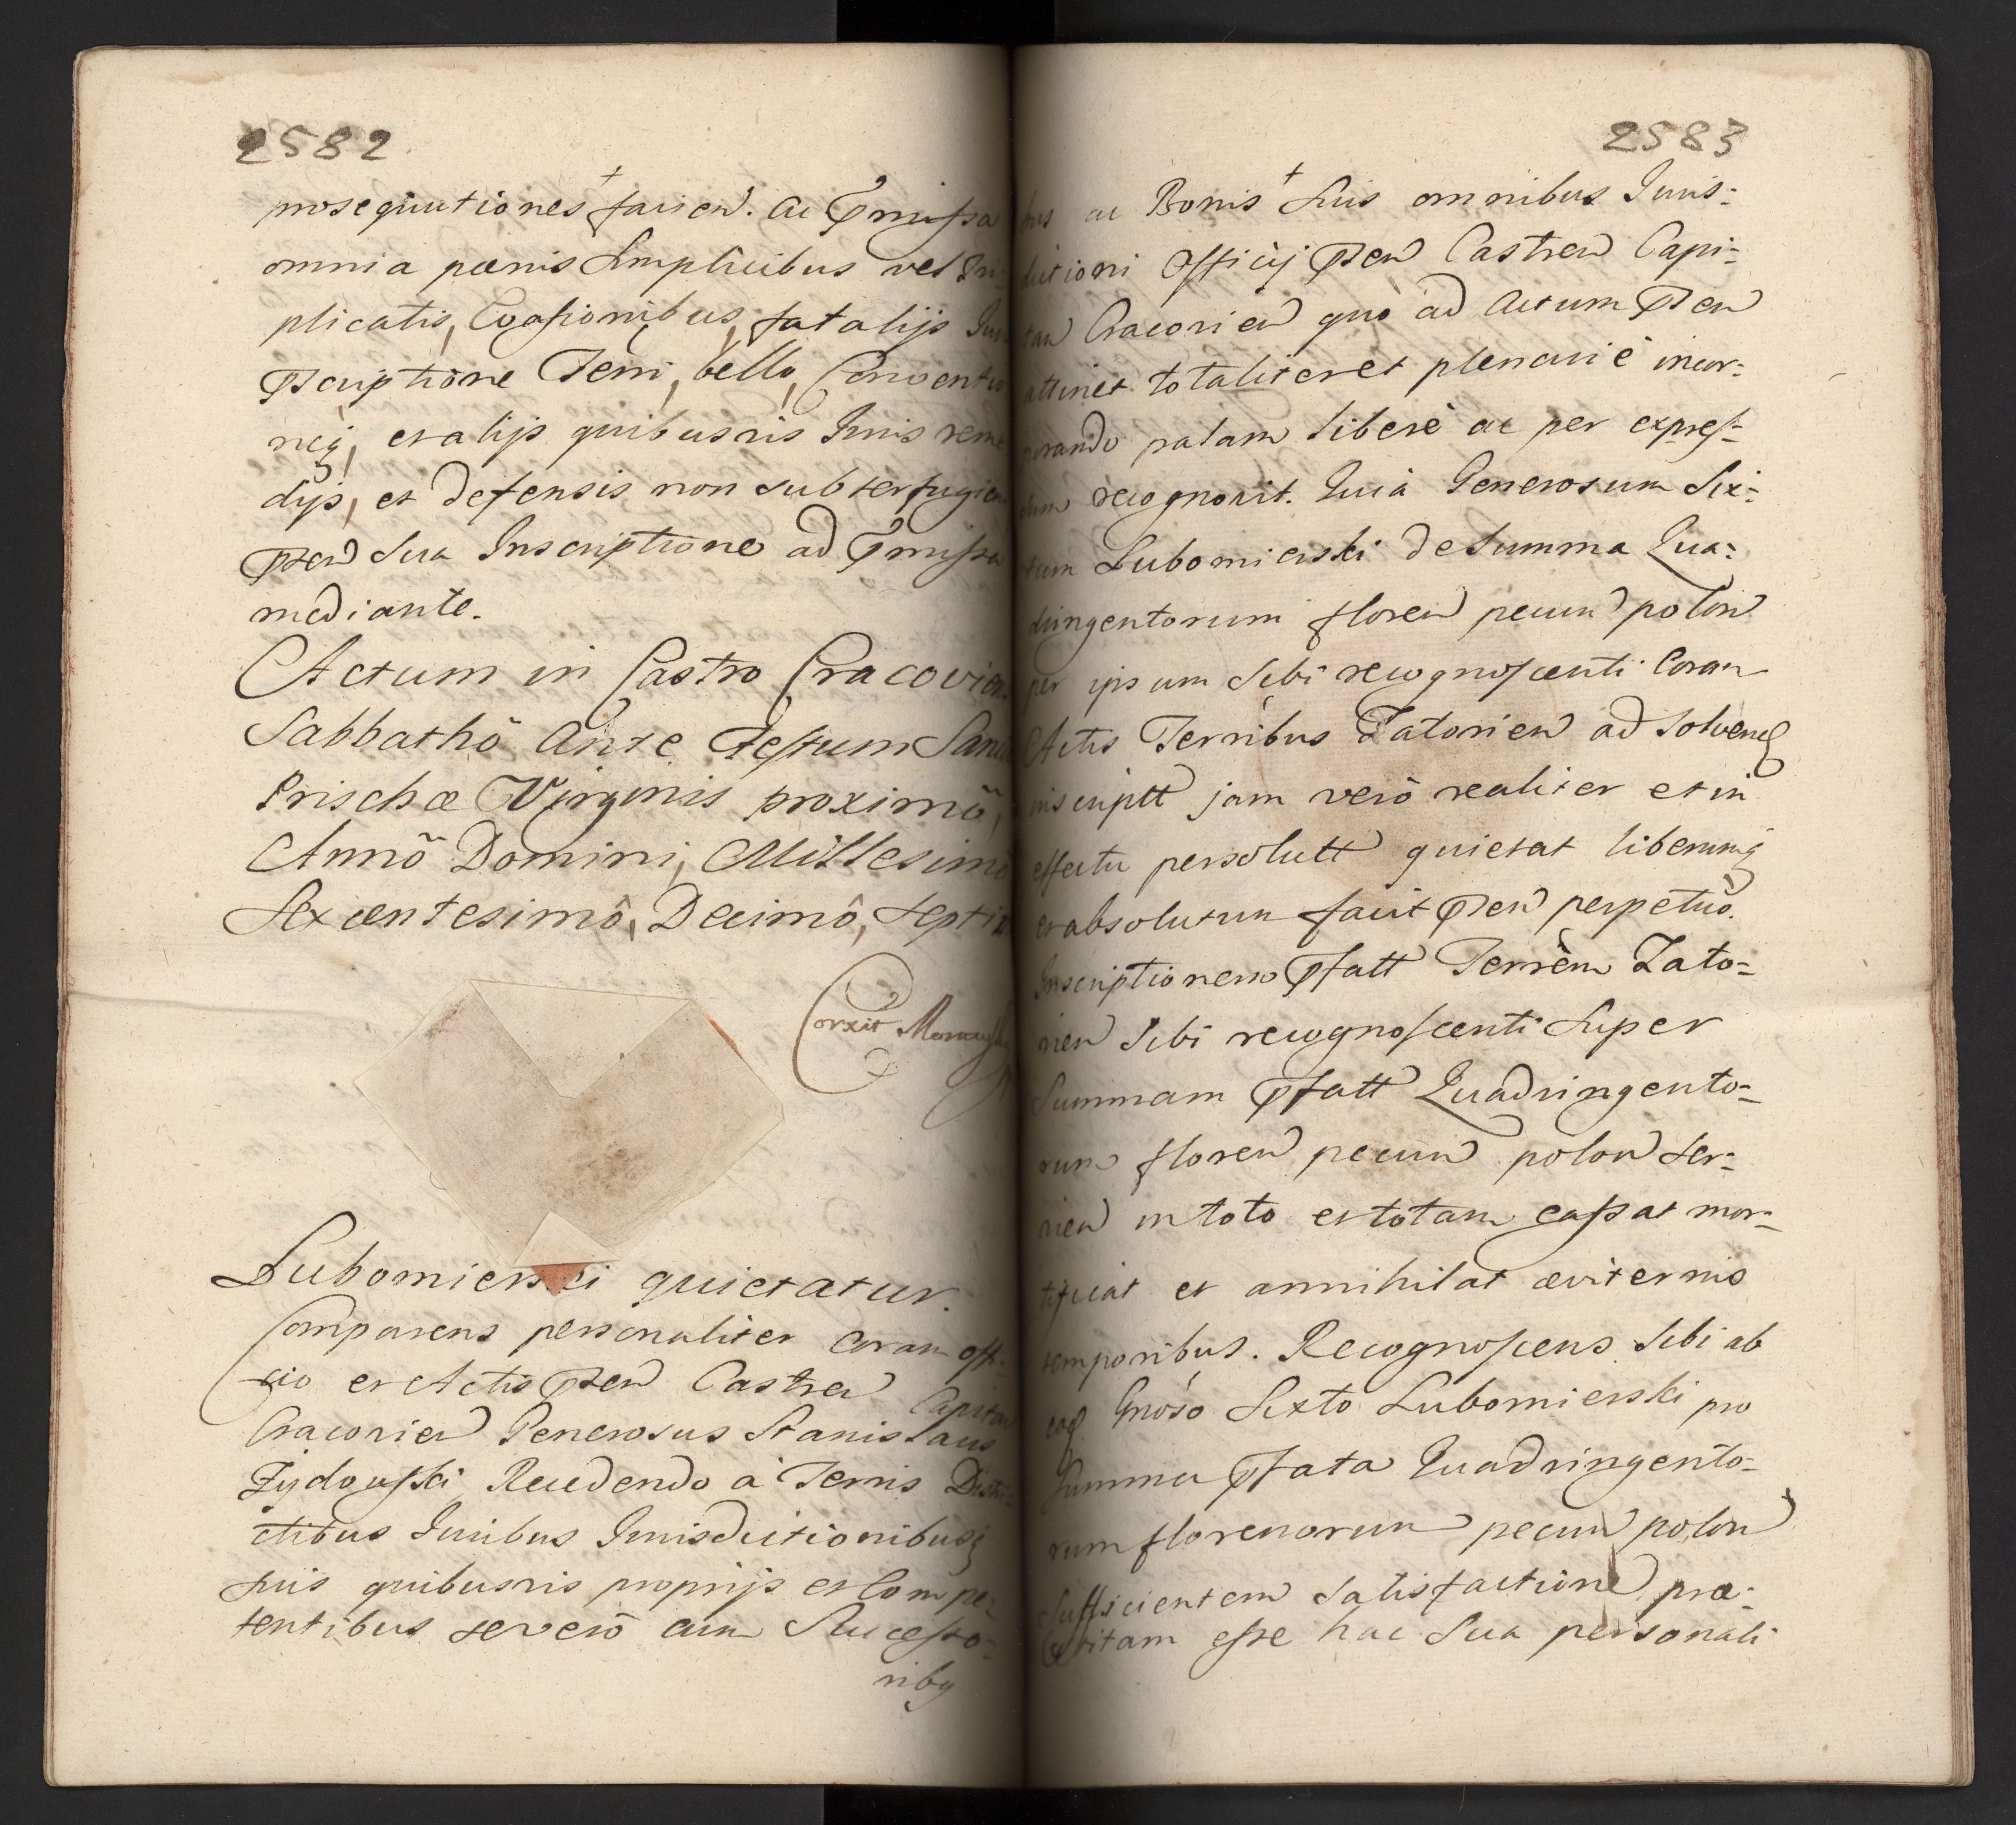 2582
prosequutiones + facien. ac Pmissa
omnia pœnis Simplicibus vel Tri-
plicatis, Evasionibus, fatalijs Juris
Pscriptione Terri, bello, Conventio
neq, et alijs quibusvis Juris reme
dijs, et defensis non subterfugien
Psen Sua Inscriptione ad Pmissa
mediante.
Actum in Castro Cracovien.
Sabbathô Ante Festum Sanctæ
Prischæ Virginis proximô,
Annô Domini, Millesimô
Sexcentesimô, Decimô, Septimô
Correxit
Lubomierski quietatur.
Comparens personaliter coram offi-
cio et Actis Psen Castren Capitan
Cracovien Generosus Stanislaus
Zydowski Recedendo à Terris Distri-
ctibus Juribus Jurisdictionibusq
suis quibusvis proprijs et Compe-
tentibus se verò cum Successo-
ribq
2583
bus ac Bonis + Suis omnibus Juris-
dictioni Officij Psen Castren Capi-
tan Cracovien quò ad Actum Psen
attinet totaliter et plenariè incor-
porando palam liberè ac per expres-
sum recognovit. Quià Generosum Six-
tum Lubomierski de Summa Qua-
dringentorum floren pecun polon
per ipsum Sibi recognoscenti Coram
Actis Terribus Zatorien ad Solvend
inscriptt jam verò realiter et in
effectu persolutt quietat liberumq
et absolutum facit Psen perpetuò.
Inscriptionem Pfatt Terrèm Zato-
rien Sibi recognoscenti Super
Summam Pfatt Quadringento-
rum floren pecun polon Ser-
vien in toto et totam cassat mor-
tificat et annihilat æviternis
temporibus. Recognoscens Sibi ab
eod Gnoso Sixto Lubomierski pro
Summa Pfata Quadringento-
rum florenorum pecun polon
Sufficientem Satisfactione præ-
stitam esse hac Sua personali